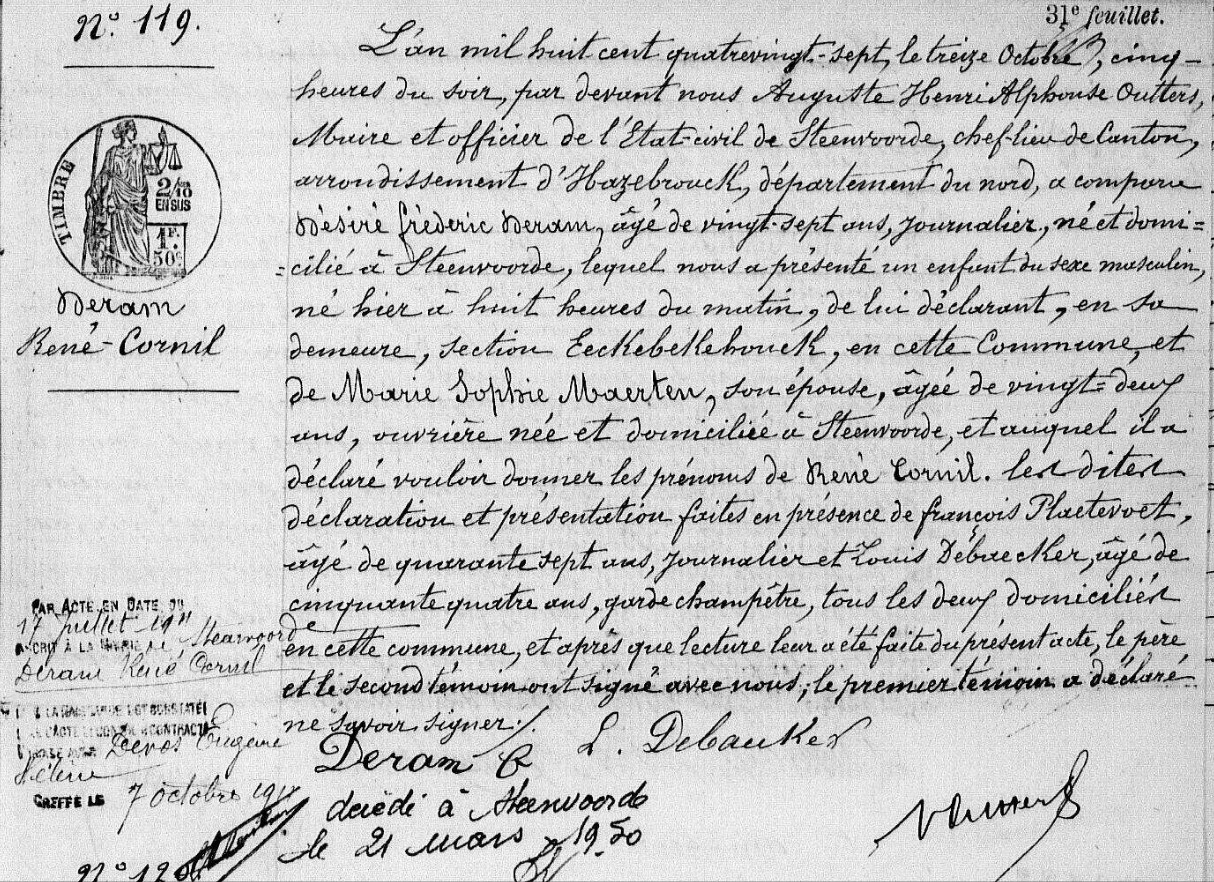 N° 119.
31e feuillet.
TIMBRE
2/10
EN SUS
1F.
50c
Deram
René-Cornil
L'an mil huit cent quatrevingt-sept, le treize Octobre, cinq
heures du soir, par devant nous Auguste Henri Alphonse Outters,
Maire et officier de l'Etat-civil de Steenvoorde, chef-lieu de Canton,
arrondissement d'Hazebrouck, département du nord, a comparu
Désiré fréderic Deram, âgé de vingt-sept ans, Journalier, né et domi=
=cilié à Steenvoorde, lequel nous a présenté un enfant du sexe masculin,
né hier à huit heures du matin, de lui déclarant, en sa
demeure, section Eeckebekehouck, en cette Commune, et
de Marie Sophie Maerten, son épouse, âgée de vingt=deux
ans, ouvrière née et domiciliée à Steenvoorde, et auquel il a
déclaré vouloir donner les prénoms de René Cornil. les dites
déclaration et présentation faites en présence de françois Plaetevoet,
âgé de quarante sept ans, Journalier et Louis Débaecker, âgé de
cinquante quatre ans, garde champêtre, tous les deux domiciliés
en cette commune, et après que lecture leur a été faite du présent acte, le père
et le second témoin ont signé avec nous; le premier témoin a déclaré
ne savoir signer.
PAR ACTE EN DATE DU
17 Juillet
INSCRIT À LA MAIRIE de Steenvoorde
Deram René Cornil
CONTRACTÉ
MARIAGE AVEC Devos Eugénie
Hélène
GREFFE LE 7 octobre
Deram
L. Debaecker
décédé à Steenvoorde
le 21 mars 1950
N° 120